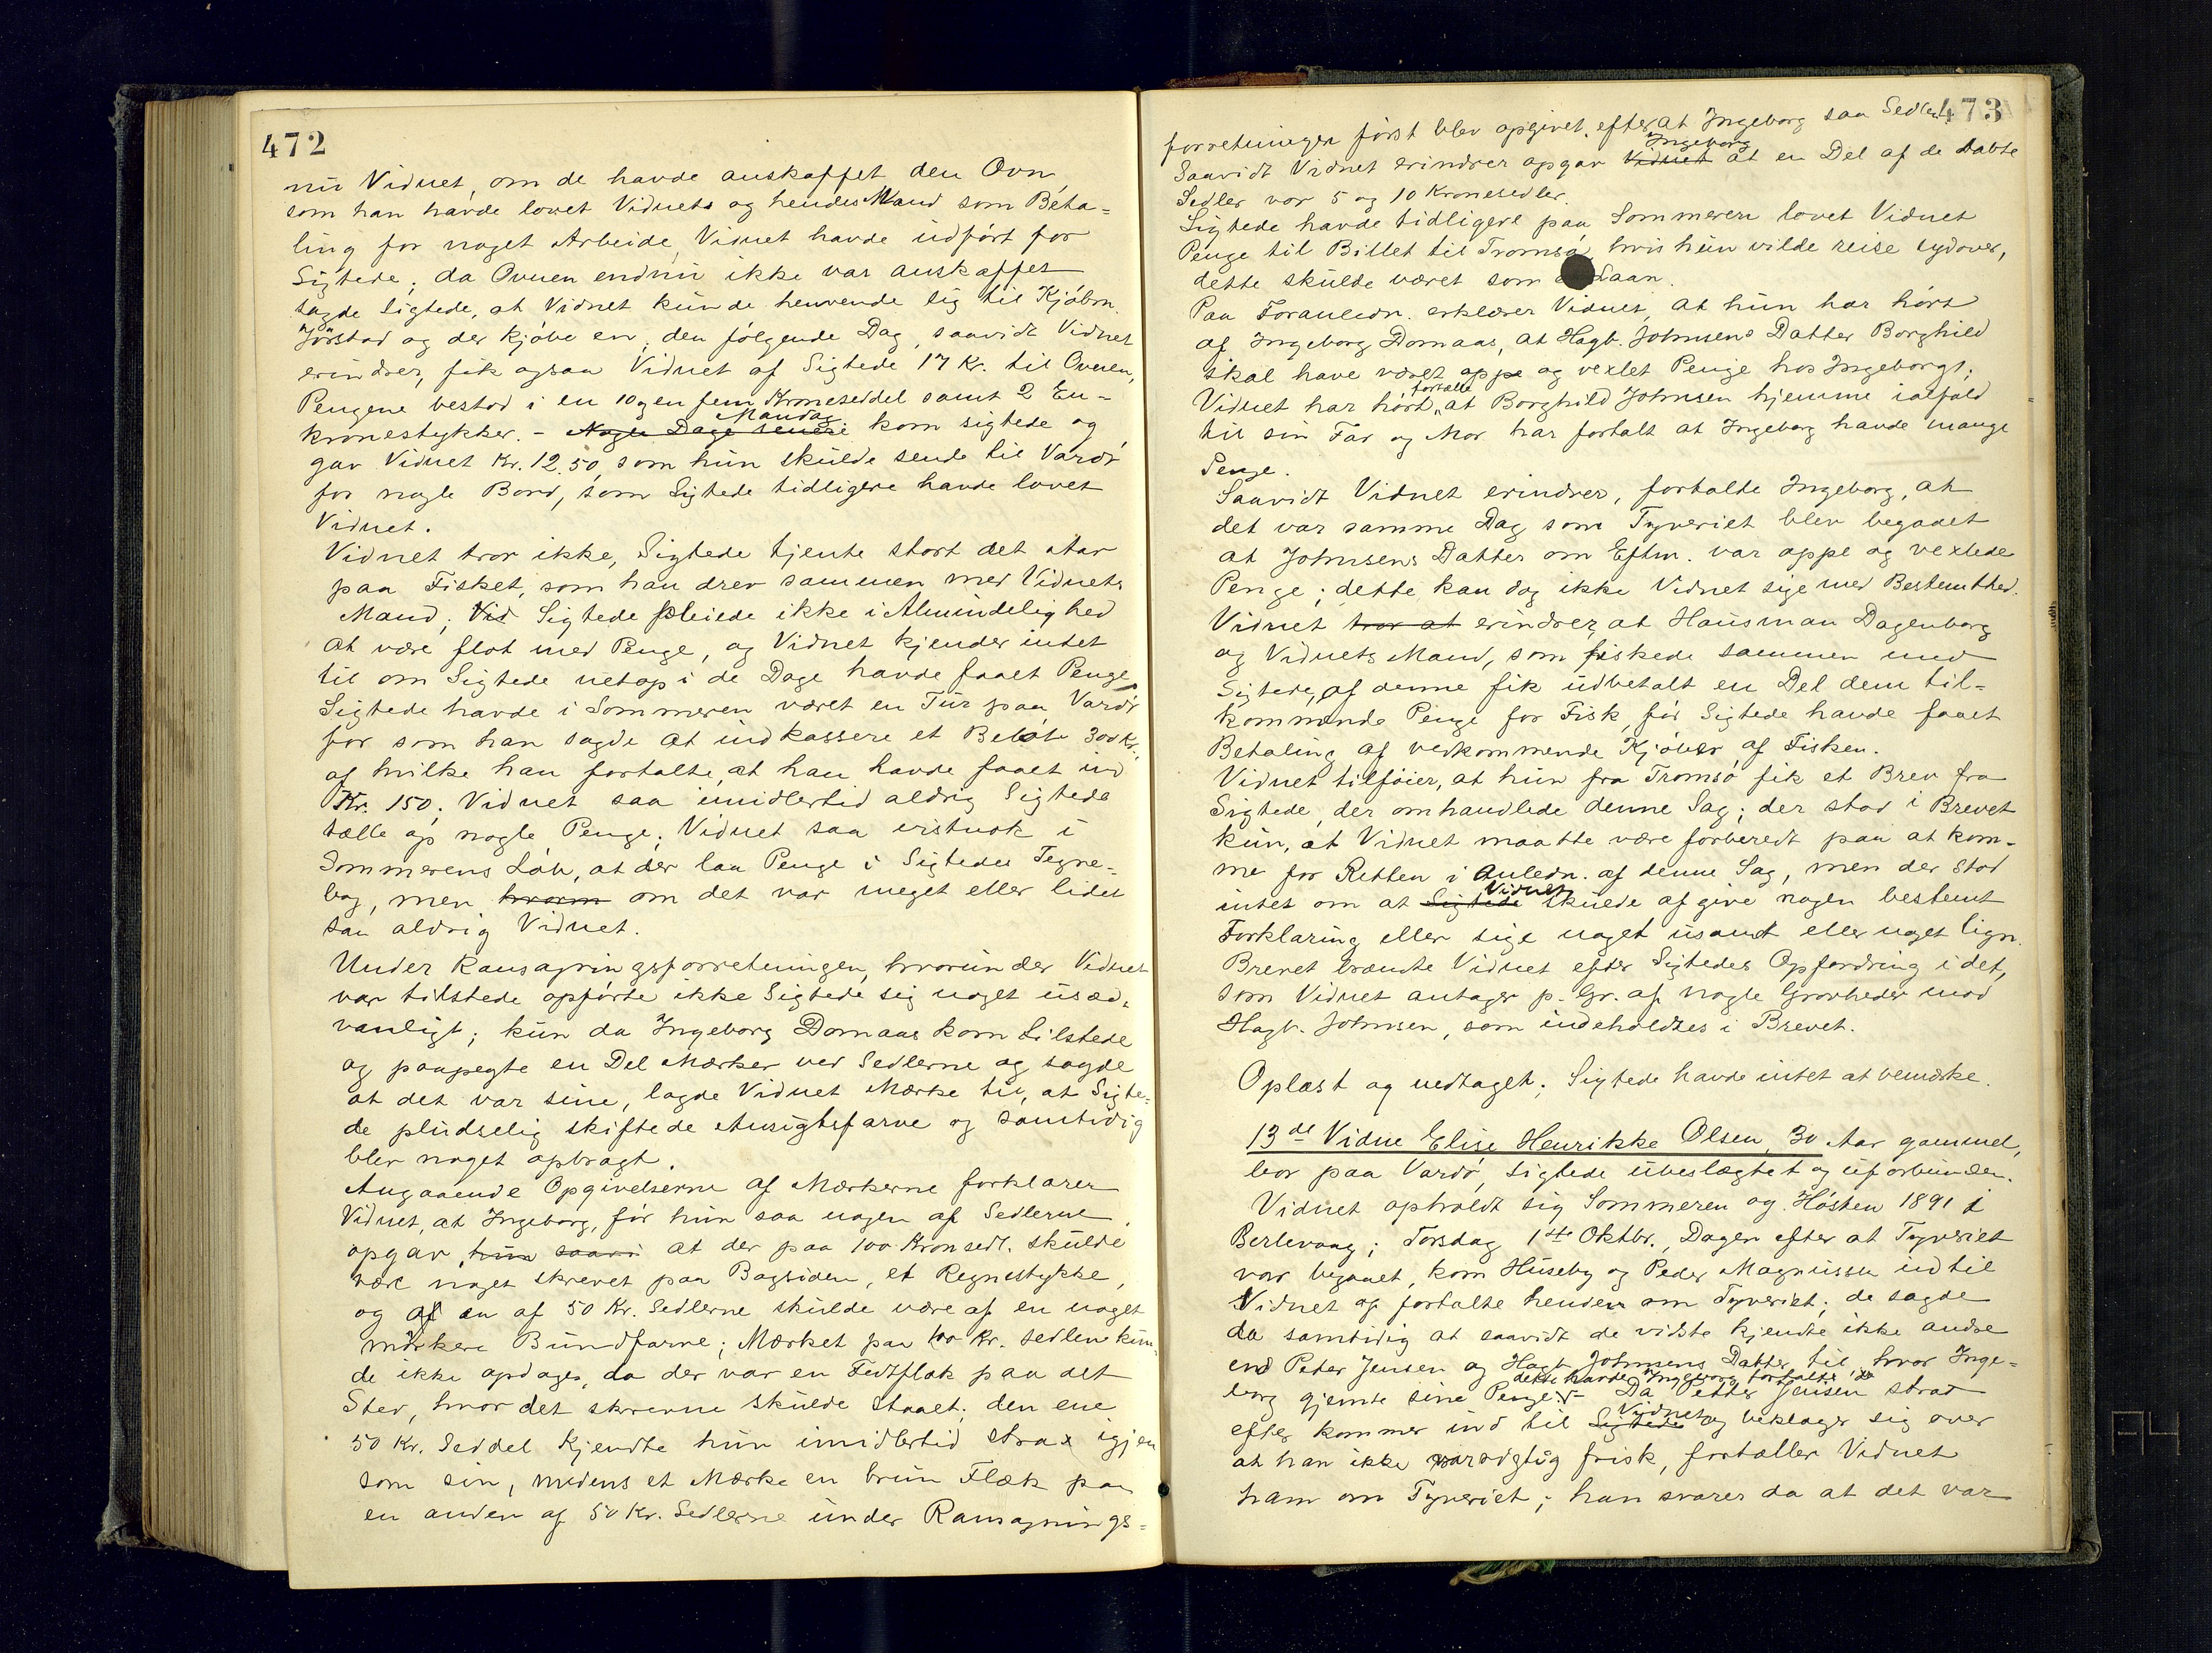 472
nu Vidnet, om de havde anskaffet den Ovn,
som han havde lovet Vidnets og hendes Mand som Beta=
ling for noget Arbeide, Vidnet havde udført for
Sigtede; da Ovnen endnu ikke var anskaffet
sagde Sigtede, at Vidnet kunde henvende sig til Kjøbm.
Jørstad og der kjøbe en; den følgende Dag, saavidt Vidnet
erindrer, fik ogsaa Vidnet af Sigtede 17 Kr. til Ovnen,
Pengene bestod i en 10 og en fem Kroneseddel samt 2 En-
Mandag
kronestykker. - Nogle Dage senere kom sigtede og
gav Vidnet Kr. 12.50, som hun skulde sende til Vardø
for nogle Bord, som Sigtede tidligere havde lovet
Vidnet.
Vidnet tror ikke, Sigtede tjente stort det Aar
paa Fisket, som han drev sammen med Vidnets
Mand; Vid Sigtede pleiede ikke i Almindelighed
at være flot med Penge, og Vidnet kjender intet
til om Sigtede netop i de Dage havde faaet Penge,
Sigtede havde i Sommeren været en Tur paa Vardø
for som han sagde at indkassere et Beløb 300 Kr.,
af hvilke han fortalte, at han havde faaet ind
Kr. 150; Vidnet saa imidlertid aldrig Sigtede
tælle op nogle Penge; Vidnet saa vistnok i
Sommerens Løb, at der laa Penge i Sigtedes Tegne-
bog, men hvorm om det var meget eller lidet
saa aldrig Vidnet.
Under Ransagningsforretningen, hvorunder Vidnet
var tilstede opførte ikke Sigtede sig noget usæd-
vanligt; kun da Ingeborg Domaas kom tilstede
og paapegte en Del Mærker ved Sedlerne og sagde
at det var sine, lagde Vidnet Mærke til, at Sigte-
de pludselig skiftede Ansigtsfarve og samtidig
blev noget opbragt.
Angaaende Opgivelserne af Mærkerne forklarer
Vidnet, at Ingeborg, før hun saa nogen af Sedlerne
opgav, hun at der paa 100 Kronsedl. skulde
være noget skrevet paa Bagsiden, et Regnestykke,
og at en af 50 Kr. Sedlerne skulde være af en noget
mørkere Bundfarve; Mærket paa 100 Kr. sedlen kun-
de ikke opdages, da der var en Fedtflæk paa det
Sted, hvor det skrevne skulde staaet; den ene
50 Kr. Seddel kjendte hun imidlertid strax igjen
som sin, medens et Mærke en brun Flæk paa
en anden af 50 Kr. Sedlerne under Ransagnings=
473
forretningen først blev opgivet, efter at Ingeborg saa Sedlen.
Ingeborg
Saavidt Vidnet erindrer opgav Vidnet at en Del af de tabte
Sedler var 5 og 10 Kronesedler.
Sigtede havde tidligere paa Sommeren lovet Vidnet
Penge til Billet til Tromsø, hvis hun vilde reise sydover,
dette skulde været som Laan.
Paa Foranledn. erklærer Vidnet, at hun har hørt
af Ingeborg Domaas, at Hagb. Johnsens Datter Borghild
skal have været oppe og vexlet Penge hos Ingeborgs;
fortælle
Vidnet har hørt, at Borghild Johnsen hjemme ialfald
til sin Far og Mor har fortalt at Ingeborg havde mange
Penge.
Saavidt Vidnet erindrer, fortalte Ingeborg, at
det var samme Dag som Tyveriet blev begaaet
at Johnsens Datter om Eftm. var oppe og vexlede
Penge; dette kan dog ikke Vidnet sige med Bestemthed.
Vidnet tror at erindrer, at Hausman Dagenborg
og Vidnets Mand, som fiskede sammen med
Sigtede, af denne fik udbetalt en Del dem til=
kommende Penge for Fisk, før Sigtede havde faaet
Betaling af vedkommende Kjøber af Fisken.
Vidnet tilføier, at hun fra Tromsø fik et Brev fra
Sigtede, der omhandlede denne Sag; der stod i Brevet
kun, at Vidnet maatte være forberedt paa at kom-
me for Retten i Anledn. af denne Sag, men der stod
Vidnet
intet om at Sigtede skulde afgive nogen bestemt
Forklaring eller sige noget usandt eller noget lign.
Brevet brændte Vidnet efter Sigtedes Opfordring i det,
som Vidnet antager p. Gr. af nogle Grovheder mod
Hagb. Johnsen, som indeholdtes i Brevet.
Oplæst og vedtaget; Sigtede havde intet at bemærke.
13de Vidne Elise Henrikke Olsen, 30 Aar gammel,
bor paa Vardø, Sigtede ubeslægtet og uforbunden.
Vidnet opholdt sig Sommeren og Høsten 1891 i
Berlevaag; Torsdag 1ste Oktbr., Dagen efter at Tyveriet
var begaaet, kom Huseby og Peder Magnussen ind til
Vidnet og fortalte hende om Tyveriet; de sagde
da samtidig at saavidt de vidste kjendte ikke andre
end Peter Jensen og Hagb. Johnsens Datter til, hvor Inge-
dette havde Ingeborg fortalte de
borg gjemte sine Penge. - Da Petter Jensen strax
Vidnet
efter kommer ind til Sigtede og beklager sig over
at han ikke var rigtig frisk, fortæller Vidnet
ham om Tyveriet; han svarer da at det var